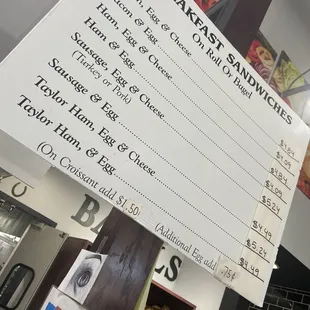 BREAKFAST SANDWICHES
On Roll Or Bagel
Egg & Cheese $4.84
Bacon & Egg $4.09
Ham, Egg & Cheese $4.84
Ham & Egg $4.09
Sausage, Egg & Cheese $5.24
(Turkey or Pork)
Sausage & Egg $4.49
Taylor Ham, Egg & Cheese $5.24
Taylor Ham, & Egg $4.49
(On Croissant add $1.50)
(Additional Egg add .75¢)
BA
S